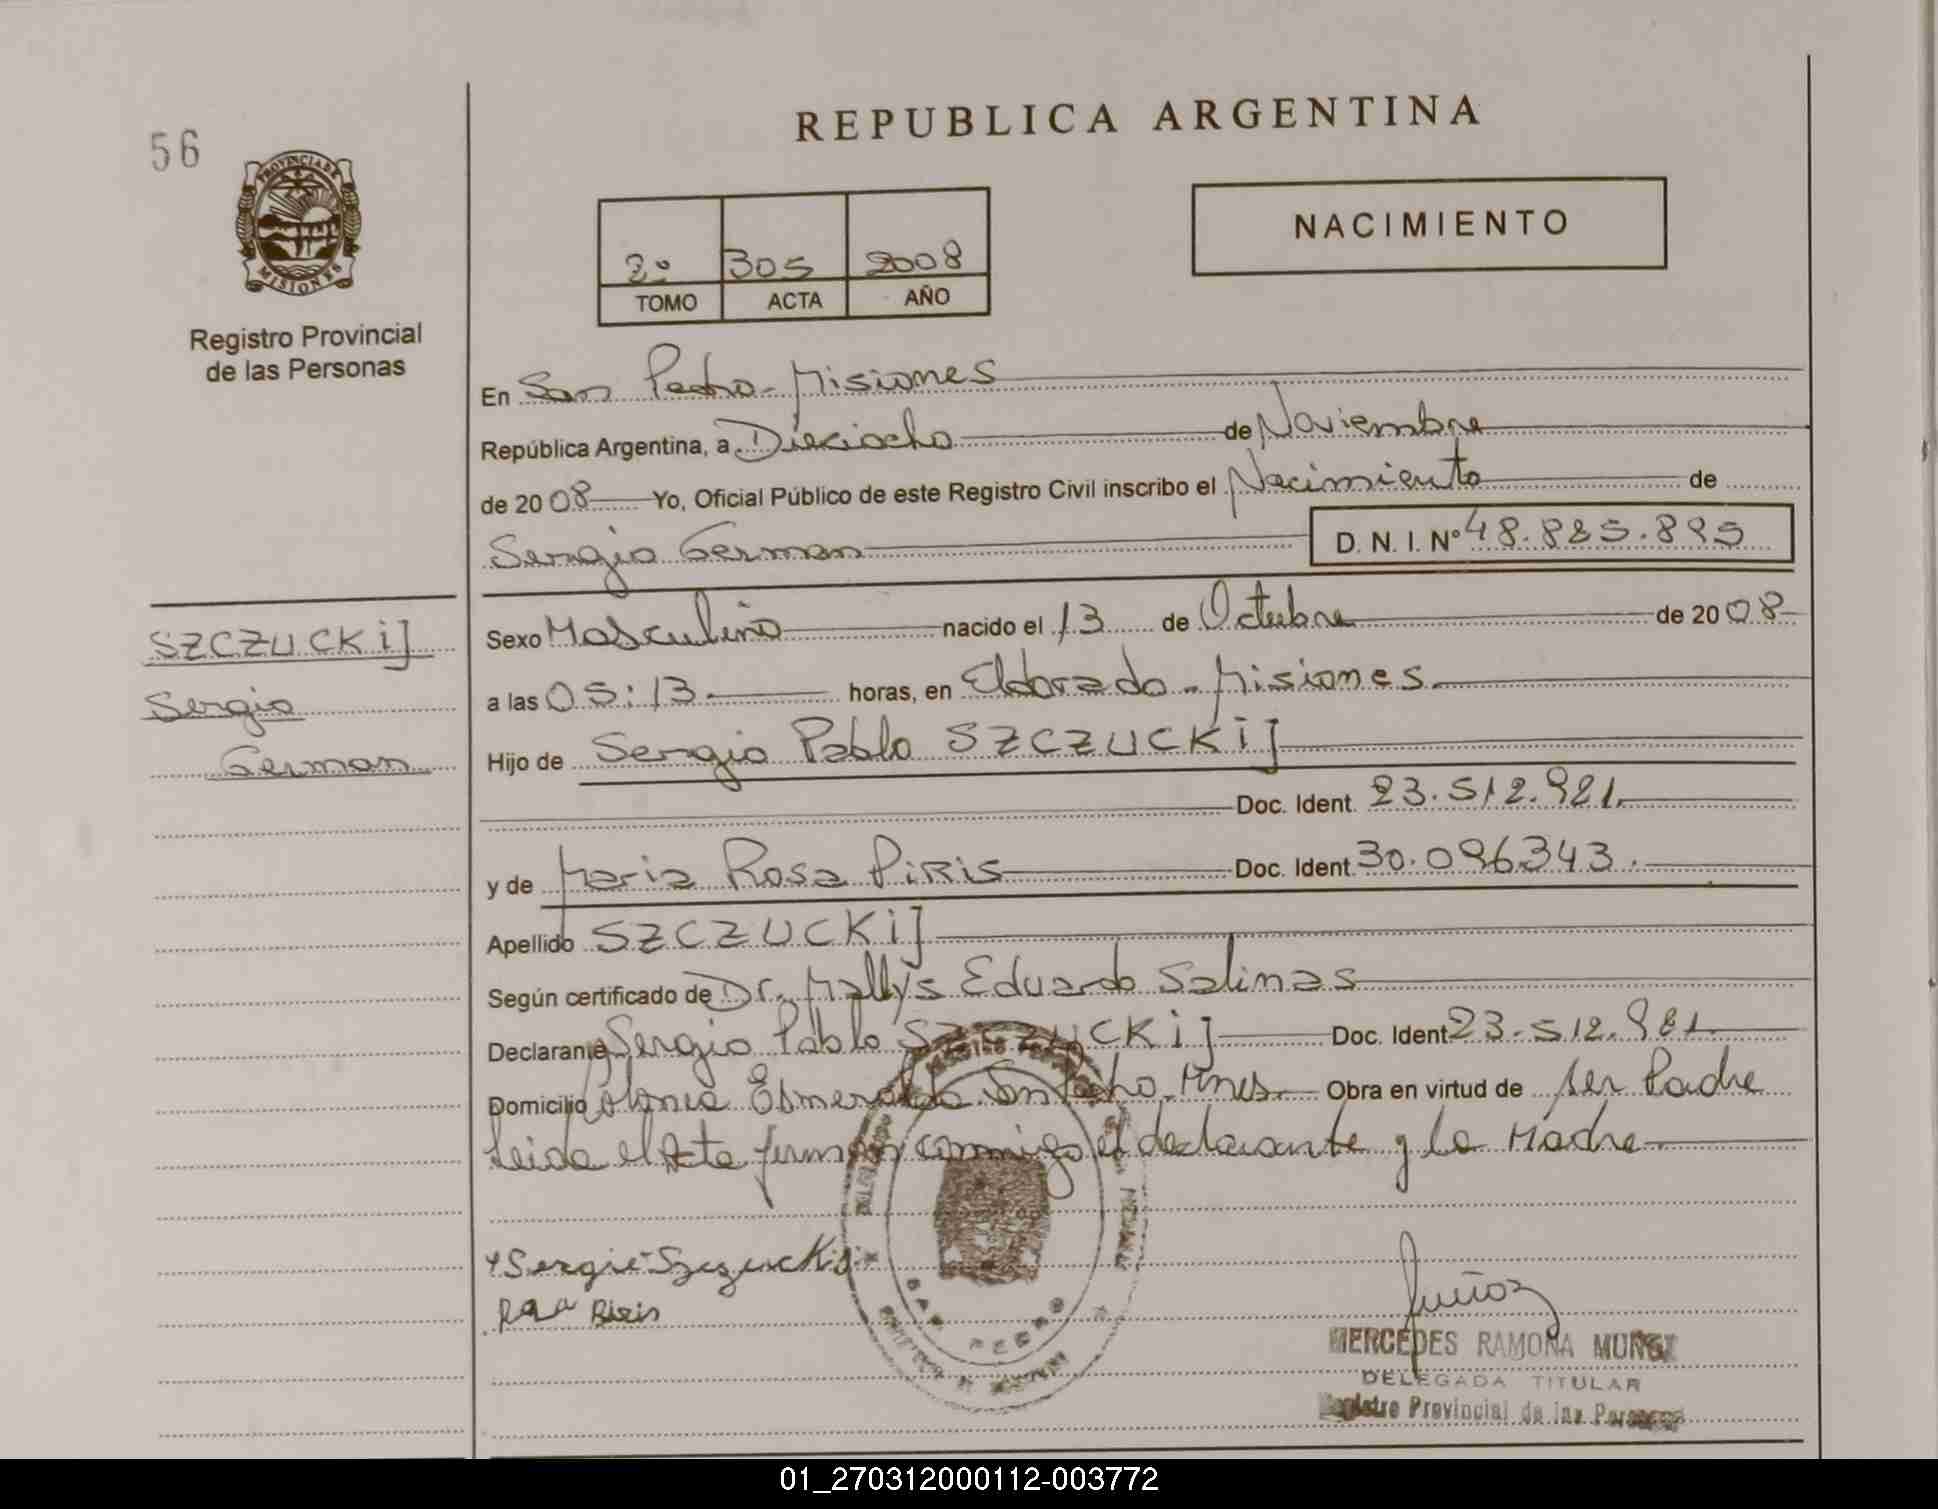 56
REPUBLICA ARGENTINA
PROVINCIA DE
MISIONES
Registro Provincial
de las Personas
2º 305 2008
TOMO ACTA AÑO
NACIMIENTO
En San Pedro - Misiones
República Argentina, a Dieciocho de Noviembre
de 2008 Yo, Oficial Público de este Registro Civil inscribo el Nacimiento de
Sergio German D. N. I. Nº 48.885.885
SZCZUCKiJ
Sergio
German
Sexo Masculino nacido el 13 de Octubre de 2008
a las 05:13 horas, en Eldorado - Misiones
Hijo de Sergio Pablo SZCZUCKiJ
Doc. Ident. 23.512.921
y de Maria Rosa PiRis Doc. Ident. 30.096.343.
Apellido SZCZUCKiJ
Según certificado de Dr. Mallys Eduardo Salinas
Declarante Sergio Pablo SZCZUCKiJ Doc. Ident 23.512.921
Domicilio Colonia Esmeralda Sn Pedro Mnes. Obra en virtud de ser Padre
Leida el Acta firman conmigo el declarante y la Madre
Sergio Szczuckij
Piris
SAN PEDRO
Muñoz
MERCEDES RAMONA MUÑOZ
DELEGADA TITULAR
Registro Provincial de las Personas
01_270312000112-003772